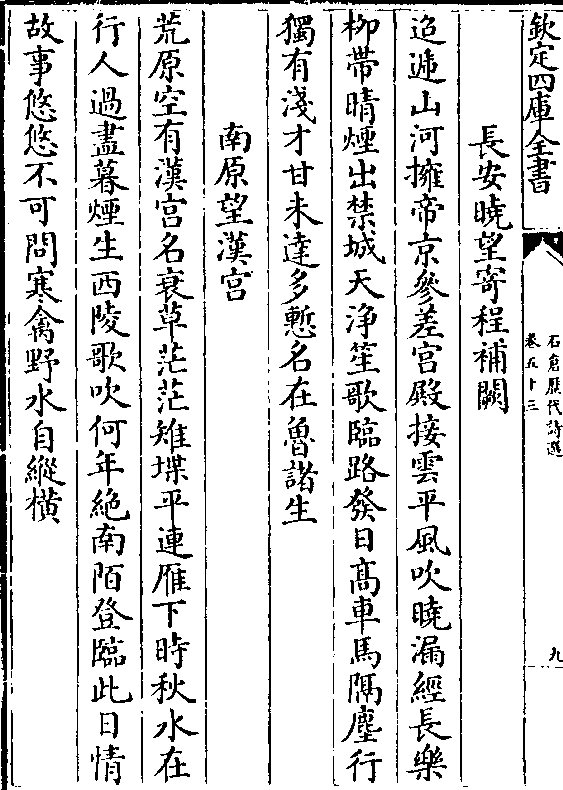 欽定四庫全書
石倉歷代詩選
卷五十三
九
長安曉望寄程補闕
迢遞山河擁帝京參差宮殿接雲平風吹曉漏經長樂
柳帶晴煙出禁城天浄笙歌臨路發日髙車馬隔塵行
獨有淺才甘未達多慙名在魯諸生
南原望漢宮
荒原空有漢宮名衰草茫茫雉堞平連雁下時秋水在
行人過盡暮煙生西陵歌吹何年絶南陌登臨此日情
故事悠悠不可問寒禽野水自縱橫